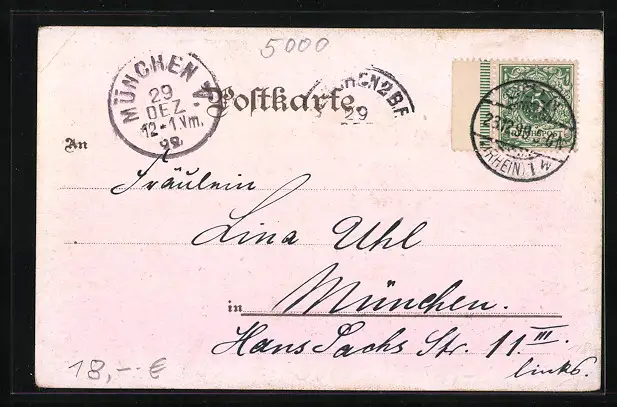 5000
MÜNCHEN
29
DEZ
12-1 Vm.
99
Postkarte
29
An
Fräulein
Lina Uhl
in München.
Hans Sachs Str. 11 III.
links.
18,- €
(RHEIN) 1 W